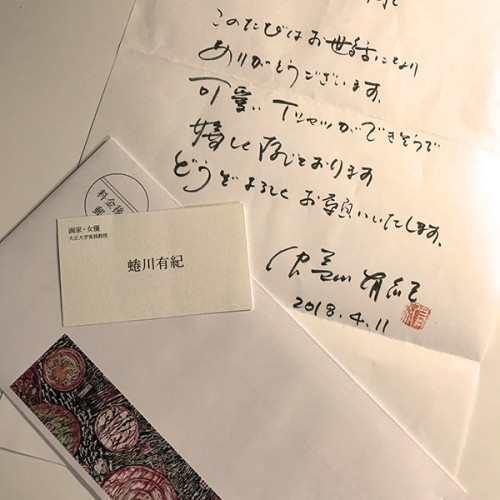 このたびはお世話になり
ありがとうございます、
可愛いTシャツができそうで
嬉しく存じております
どうぞよろしくお願いいたします。
蜷川有紀
2018.4.11
料金後
郵
画家・女優
大正大学客員教授
蜷川有紀